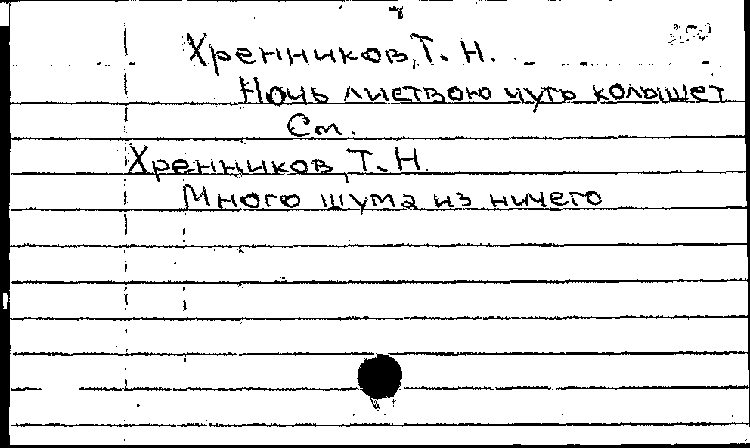 Хренников, Т. Н.
Ночь листвою чуть колышет
См.
Хренников, Т. Н.
Много шума из ничего